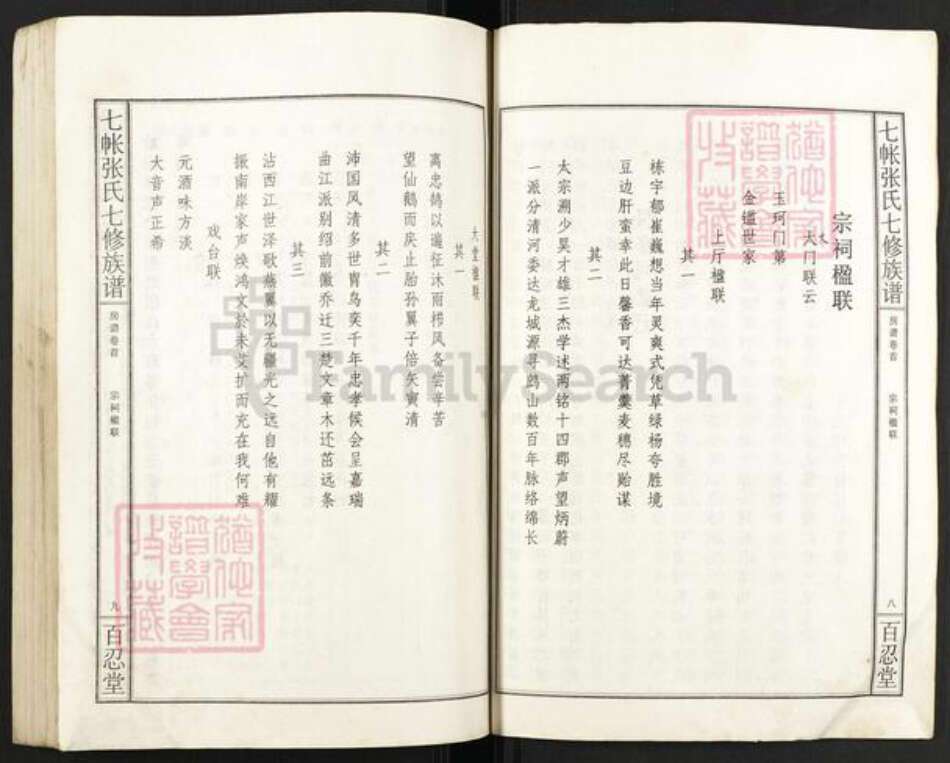 七帐张氏七修族谱
房谱卷首
宗祠楹联
八
百忍堂
宗祠楹联
大门联云
玉珂门第
金镒世家
上厅楹联
其一
栋宇郁崔巍想当年灵爽式凭草绿杨夸胜境
豆边肝蛮幸此日馨香可达菁羹麦穗尽贻谋
其二
太宗溯少昊才雄三杰学述两铭十四郡声望炳蔚
一派分清河委达龙城源寻鹧山数百年脉络绵长
大堂楹联
其一
离忠鸽以遄征沐雨栉风备尝辛苦
望仙鹅而戾止胎孙翼子倍矢寅清
其二
沛国风清多世胄凫奕千年忠孝候会呈嘉瑞
曲江派别绍前徽乔迁三楚文章木还茁远条
其三
沾西江世泽歌燕翼以无疆光之远自他有耀
振南岸家声焕鸿文於未艾扩而充在我何难
戏台联
元酒味方淡
大音声正希
七帐张氏七修族谱
房谱卷首
宗祠楹联
九
百忍堂
猶他家譜學會收藏
猶他家譜學會收藏
FamilySearch